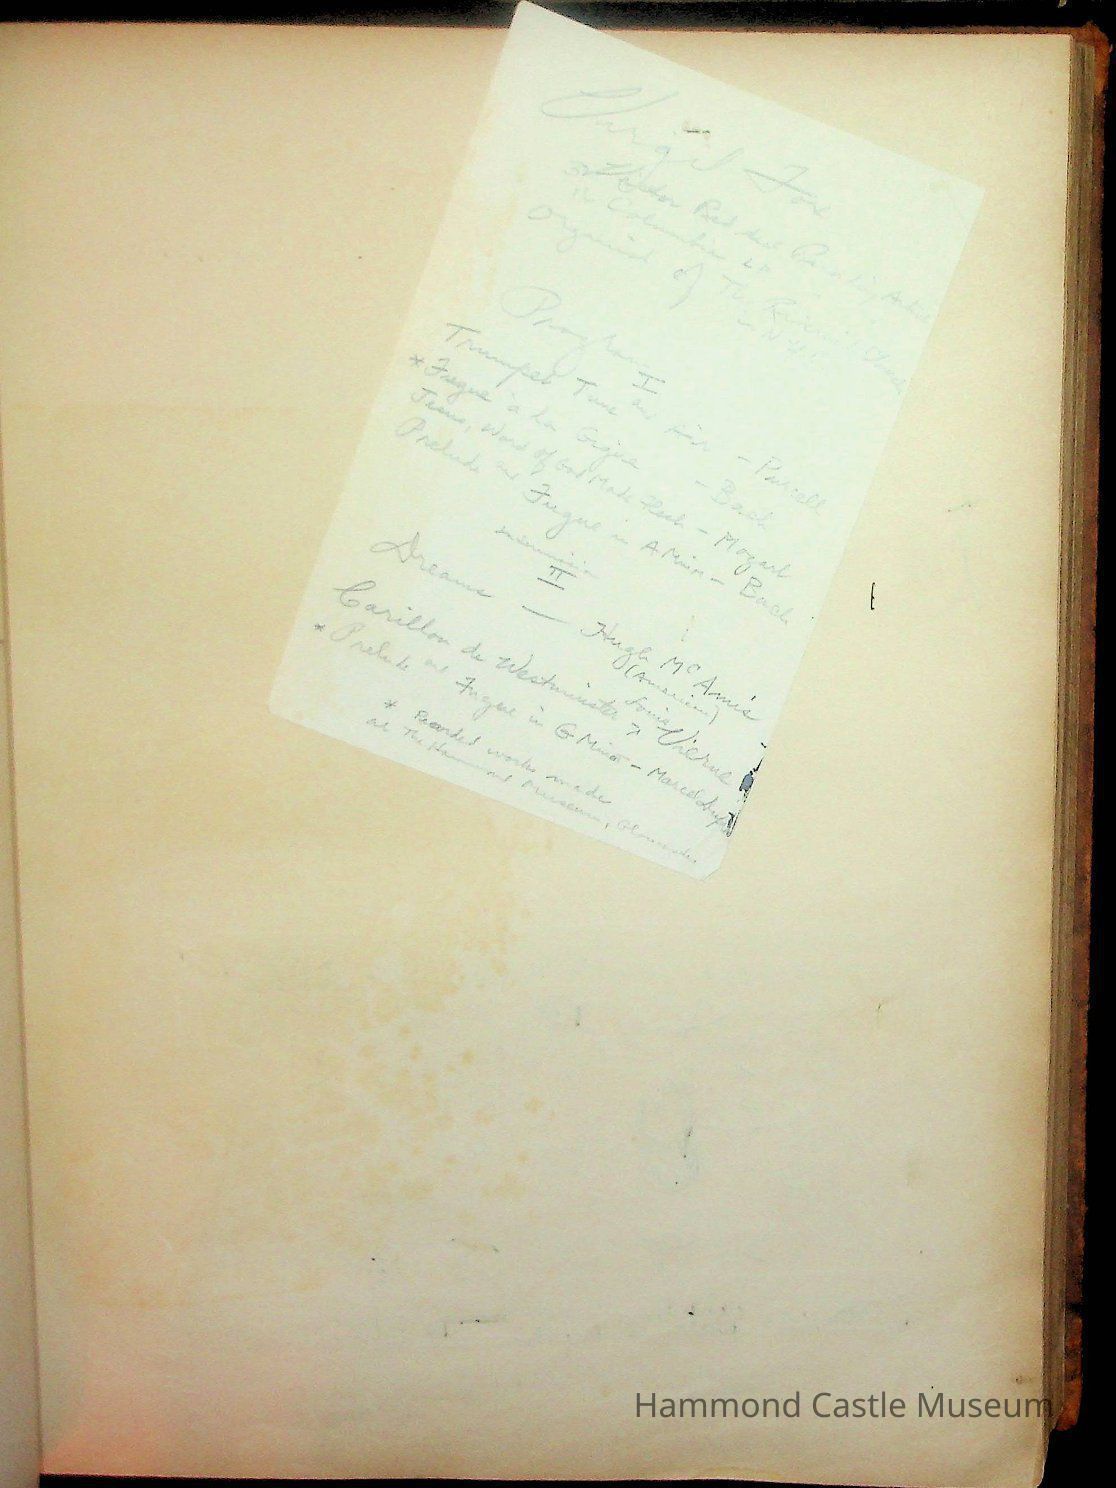 Virgil Fox
Victor Red Seal Recording Artist
& Columbia LP
Organist of The Riverside Church
in N.Y.C.
Program
I
Trumpet Tune and Air - Purcell
* Fugue à la Gigue - Bach
Jesus, Word of God Made Flesh - Mozart
Prelude and Fugue in A Minor - Bach
II
Dreams — Hugh McAmis
(American)
Carillon de Westminster - Louis Vierne
* Prelude and Fugue in G Minor - Marcel Dupré
* Recorded works made
at The Hammond Museum, Gloucester
Hammond Castle Museum